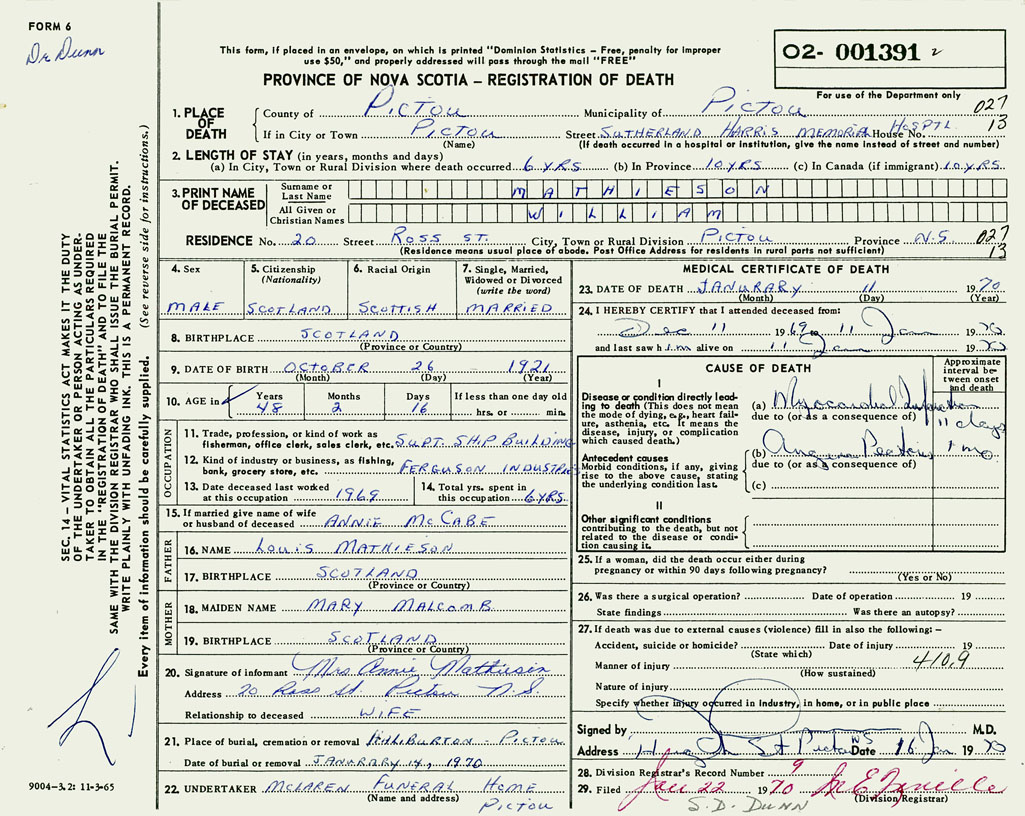 FORM 6
Dr Dunn
This form, if placed in an envelope, on which is printed "Dominion Statistics – Free, penalty for improper
use $50," and properly addressed will pass through the mail "FREE"
O2- 001391 2
PROVINCE OF NOVA SCOTIA – REGISTRATION OF DEATH
For use of the Department only
027
13
1. PLACE OF DEATH
County of PICTOU Municipality of PICTOU
If in City or Town PICTOU Street SUTHERLAND HARRIS MEMORIAL House No. HOSPTL
(Name) (If death occurred in a hospital or institution, give the name instead of street and number)
2. LENGTH OF STAY (in years, months and days)
(a) In City, Town or Rural Division where death occurred 6 YRS. (b) In Province 10 YRS. (c) In Canada (if immigrant) 10 YRS.
3. PRINT NAME OF DECEASED
Surname or Last Name MATHIESON
All Given or Christian Names WILLIAM
RESIDENCE No. 20 Street ROSS ST. City, Town or Rural Division PICTOU Province N.S. 027
13
(Residence means usual place of abode. Post Office Address for residents in rural parts not sufficient)
4. Sex
MALE
5. Citizenship
(Nationality)
SCOTLAND
6. Racial Origin
SCOTTISH
7. Single, Married,
Widowed or Divorced
(write the word)
MARRIED
8. BIRTHPLACE SCOTLAND
(Province or Country)
9. DATE OF BIRTH OCTOBER 26 1921
(Month) (Day) (Year)
10. AGE in
Years Months Days If less than one day old
48 2 16 hrs. or min.
OCCUPATION
11. Trade, profession, or kind of work as
fisherman, office clerk, sales clerk, etc. SUPT. SHIP BUILDING
12. Kind of industry or business, as fishing,
bank, grocery store, etc. FERGUSON INDUSTRIES
13. Date deceased last worked
at this occupation 1969
14. Total yrs. spent in
this occupation 6 YRS.
15. If married give name of wife
or husband of deceased ANNIE McCABE
FATHER
16. NAME LOUIS MATHIESON
17. BIRTHPLACE SCOTLAND
(Province or Country)
MOTHER
18. MAIDEN NAME MARY MALCOMB
19. BIRTHPLACE SCOTLAND
(Province or Country)
20. Signature of informant Mrs Annie Mathieson
Address 20 Ross St. Pictou N.S.
Relationship to deceased WIFE
21. Place of burial, cremation or removal HALIBURTON - PICTOU
Date of burial or removal JANURARY 14, 1970
22. UNDERTAKER McLAREN FUNERAL HOME
(Name and address) PICTOU
MEDICAL CERTIFICATE OF DEATH
23. DATE OF DEATH JANURARY 11 1970
(Month) (Day) (Year)
24. I HEREBY CERTIFY that I attended deceased from:
Dec 11 1969 11 Jan 1970
and last saw him alive on 11 Jan 1970
CAUSE OF DEATH
Approximate
interval be-
tween onset
and death
I
Disease or condition directly lead-
ing to death (This does not mean
the mode of dying, e.g., heart fail-
ure, asthenia, etc. It means the
disease, injury, or complication
which caused death.)
(a) Myocardial Infarction 11 days
due to (or as a consequence of)
Antecedent causes
Morbid conditions, if any, giving
rise to the above cause, stating
the underlying condition last.
(b) Angina Pectoris 1 mo
due to (or as a consequence of)
(c)
II
Other significant conditions
contributing to the death, but not
related to the disease or condi-
tion causing it.
25. If a woman, did the death occur either during
pregnancy or within 90 days following pregnancy?
(Yes or No)
26. Was there a surgical operation? Date of operation 19
State findings Was there an autopsy?
27. If death was due to external causes (violence) fill in also the following: –
Accident, suicide or homicide? Date of injury 19
(State which)
Manner of injury 4109
(How sustained)
Nature of injury
Specify whether injury occurred in industry, in home, or in public place
Signed by M.D.
Address High St Pictou NS Date 16 Jan 1970
28. Division Registrar's Record Number 9
29. Filed Jan 22 1970
(Division Registrar)
S. D. DUNN
SEC. 14 – VITAL STATISTICS ACT MAKES IT THE DUTY
OF THE UNDERTAKER OR PERSON ACTING AS UNDER-
TAKER TO OBTAIN ALL THE PARTICULARS REQUIRED
IN THE "REGISTRATION OF DEATH" AND TO FILE THE
SAME WITH THE DIVISION REGISTRAR WHO SHALL ISSUE THE BURIAL PERMIT.
WRITE PLAINLY WITH UNFADING INK. THIS IS A PERMANENT RECORD.
Every item of information should be carefully supplied. (See reverse side for instructions.)
9004-3.2: 11-3-65